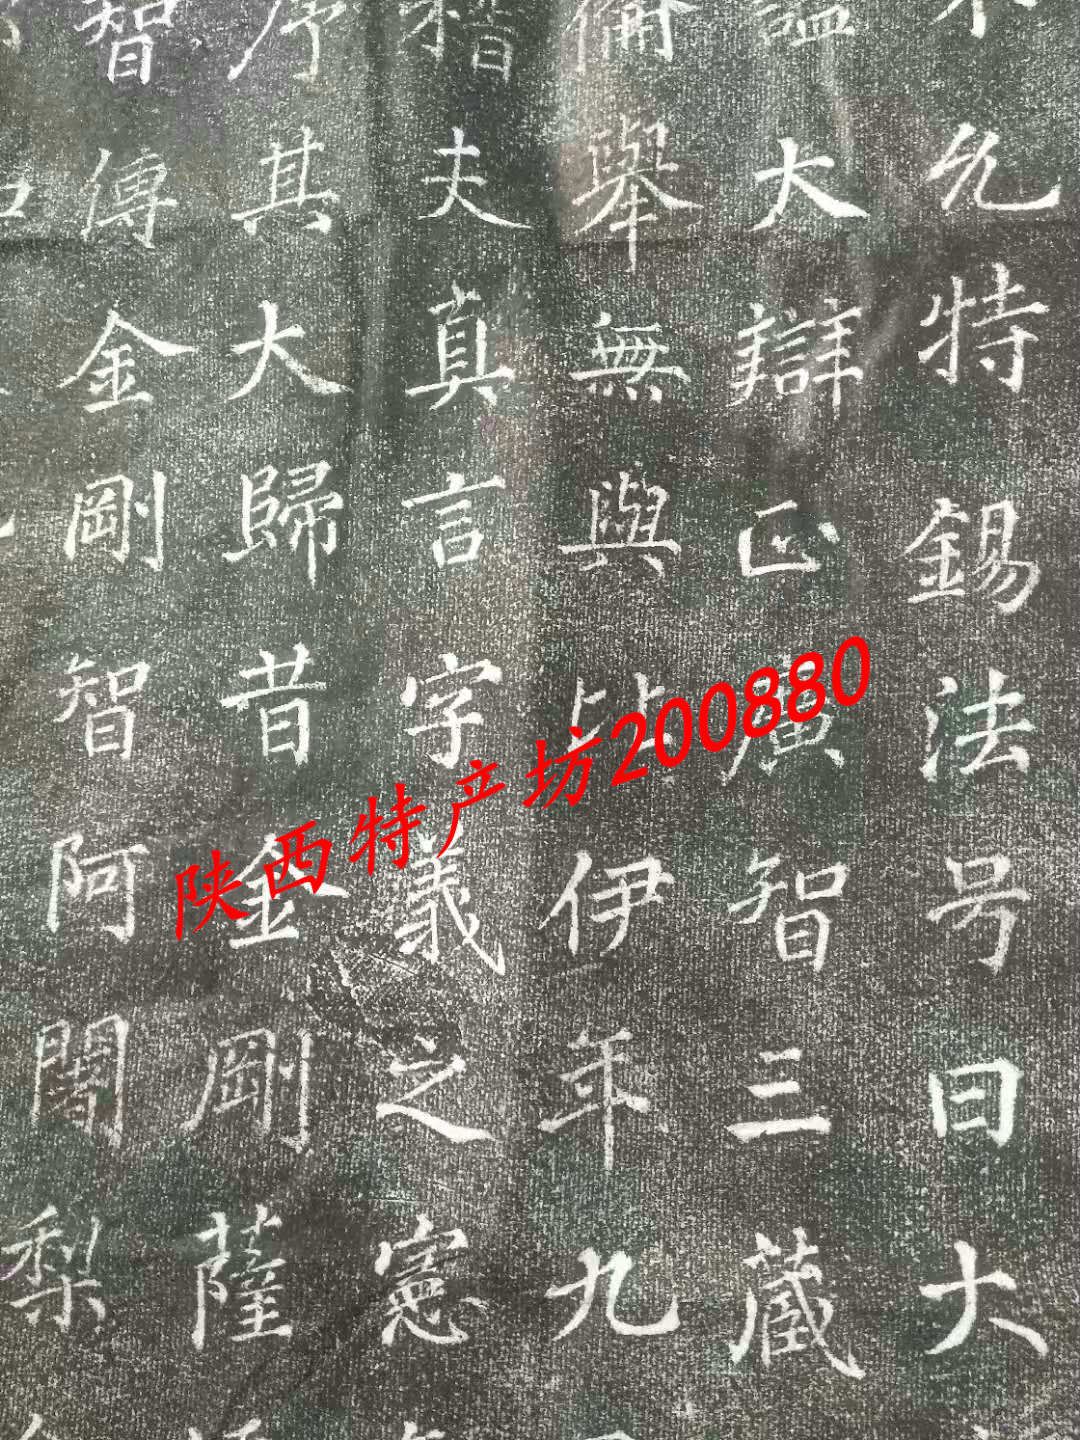 允特錫法号曰大
謚大辯正廣智三藏
舉無與比伊年九
稽夫真言字義之憲
序其大歸昔金剛薩
智傳金剛智阿闍梨
陕西特产坊200880